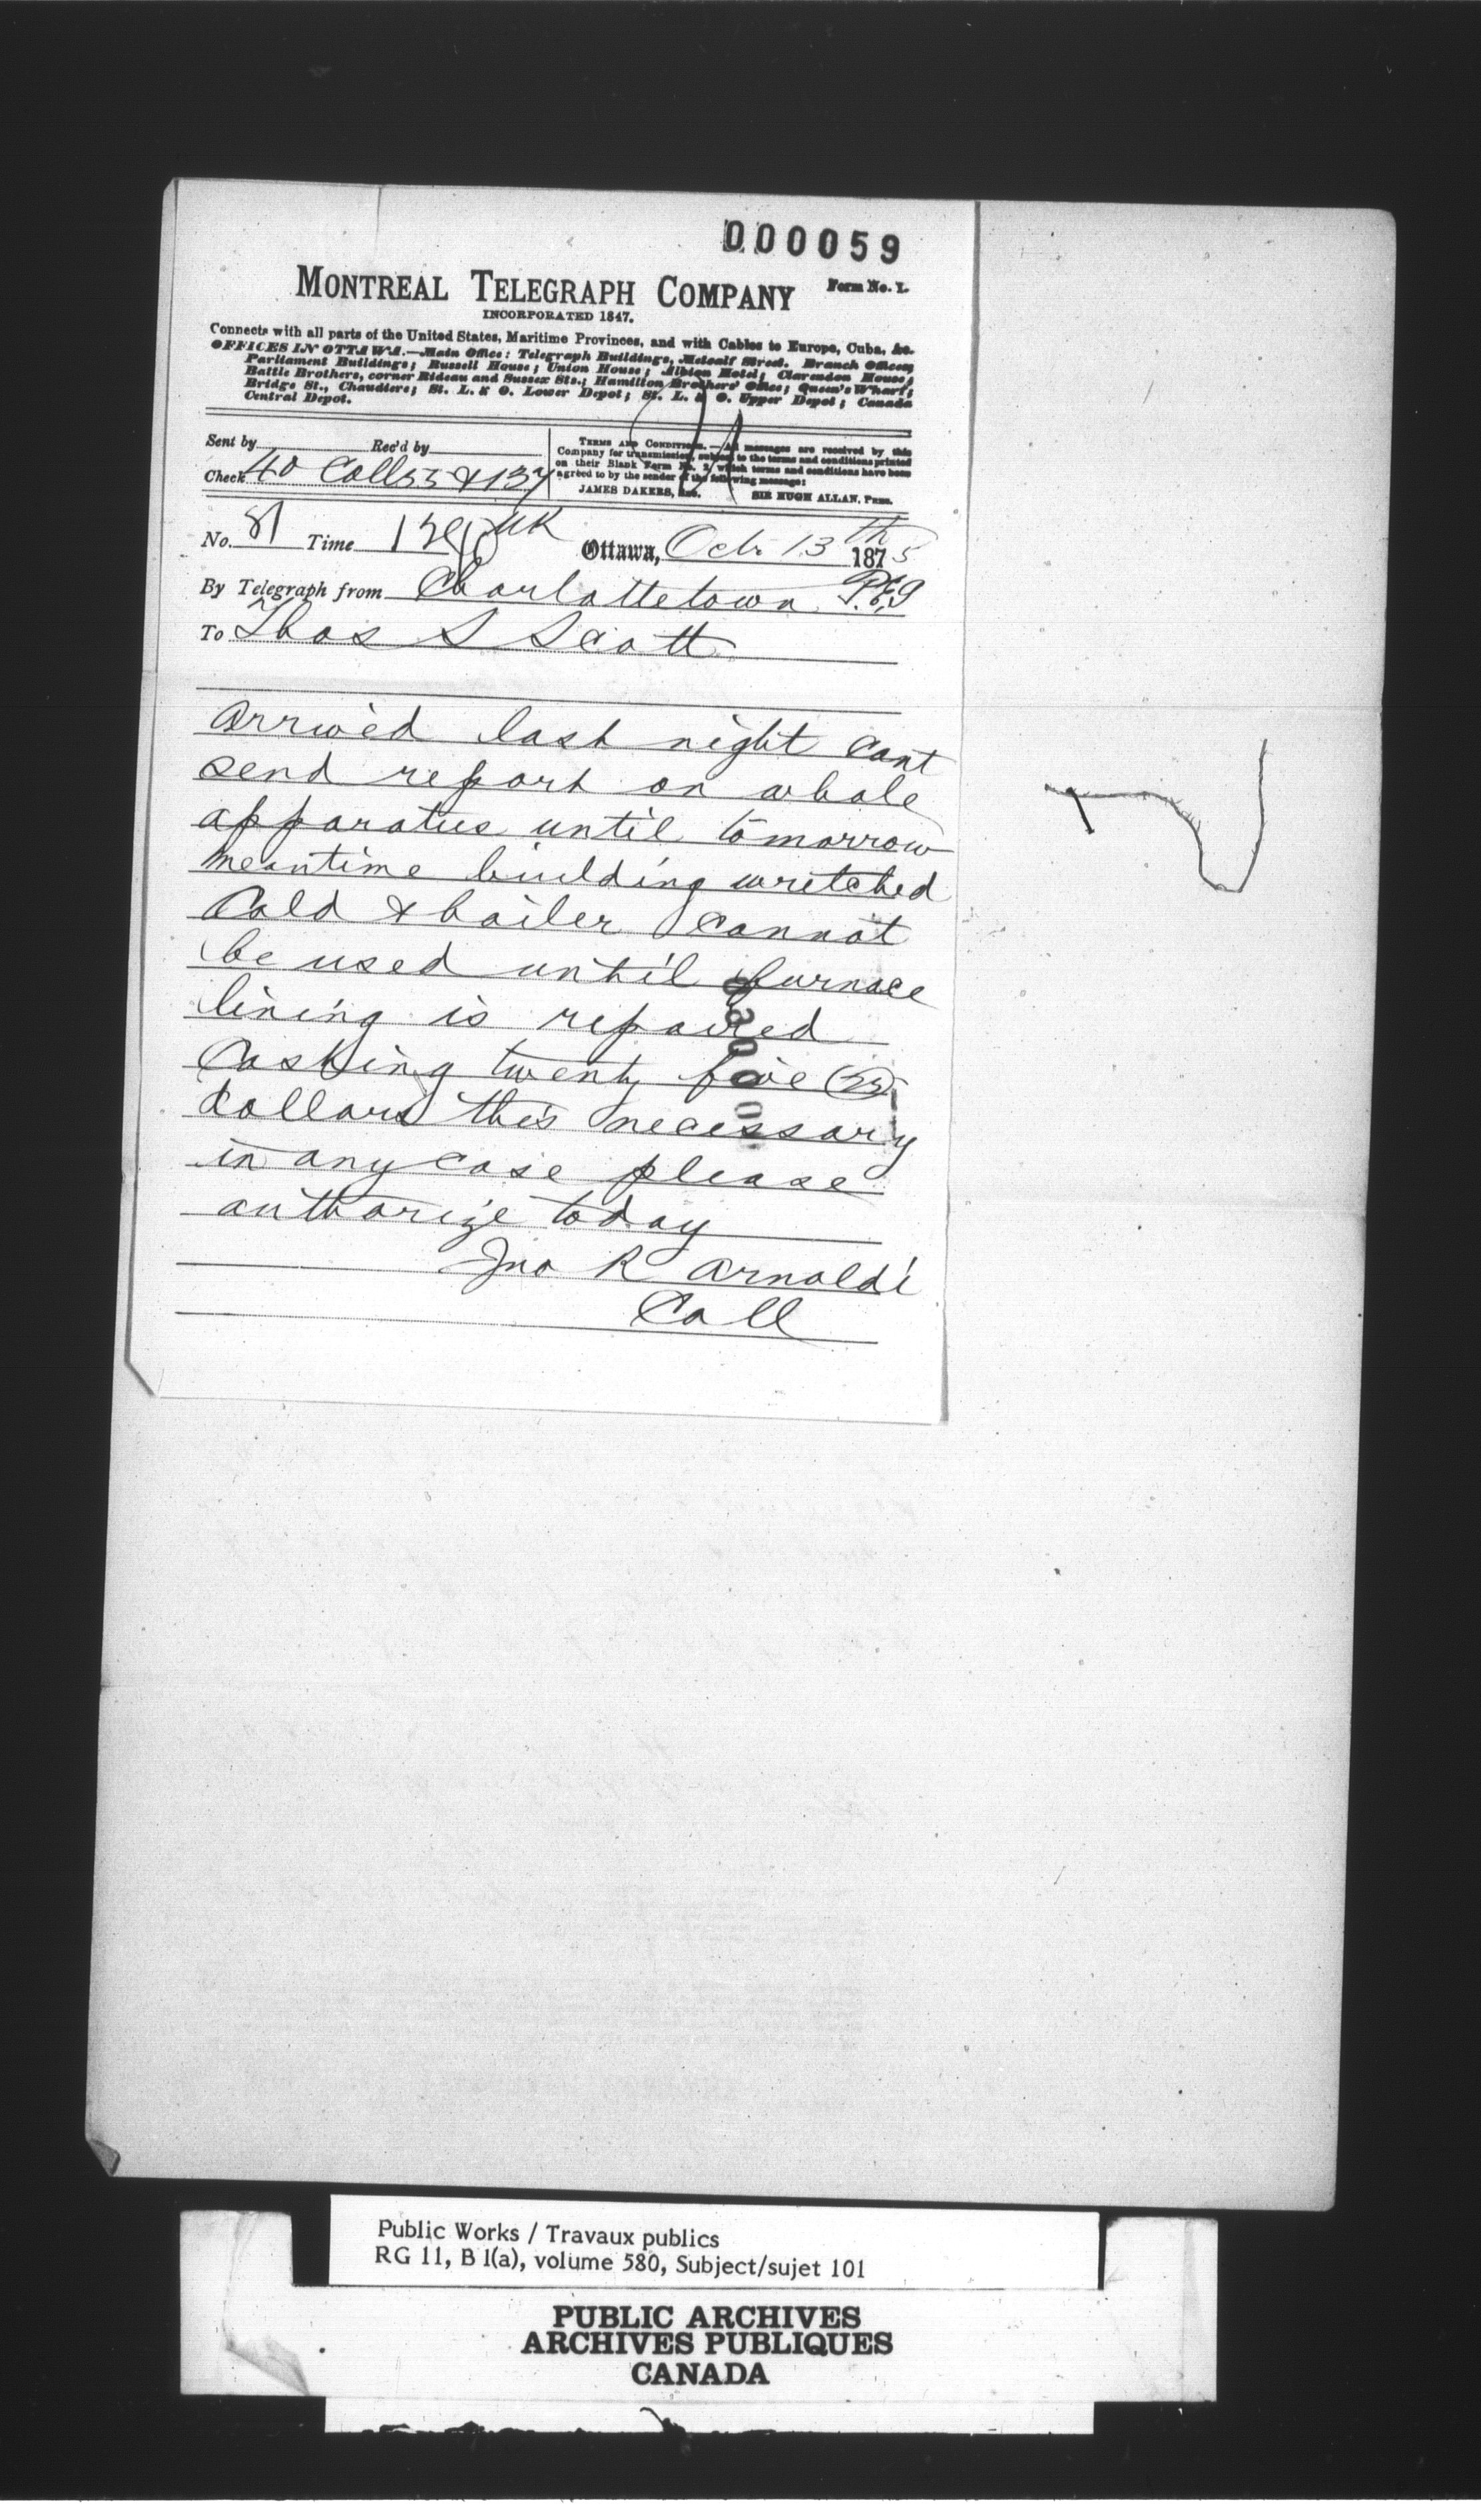 000059
MONTREAL TELEGRAPH COMPANY Form No. 1.
INCORPORATED 1847.
Connects with all parts of the United States, Maritime Provinces, and with Cables to Europe, Cuba, &c.
OFFICES IN OTTAWA.—Main Office: Telegraph Buildings, Metcalf Street. Branch Offices,
Parliament Buildings; Russell House; Union House; Albion Hotel; Clarendon House;
Battle Brothers, corner Rideau and Sussex Sts.; Hamilton Brothers' Office; Queen's Wharf;
Bridge St., Chaudiere; St. L. & O. Lower Depot; St. L. & O. Upper Depot; Canada
Central Depot.
Sent by Rec'd by
Check 40 Coll 55 & 137
TERMS AND CONDITIONS.—All messages are received by this
Company for transmission, subject to the terms and conditions printed
on their Blank Form No. 2, which terms and conditions have been
agreed to by the sender of the following message:
JAMES DAKERS, Sec. SIR HUGH ALLAN, Pres.
No. 81 Time
Ottawa, Oct 13th 1875
By Telegraph from Charlottetown
To Thos S Scott
Arrived last night cant
send report on whole
apparatus until tomorrow
meantime building wretched
Cold & boiler cannot
be used until furnace
lining is repaired
Costing twenty five (25)
dollars this necessary
in any case please
authorize today
Jno R Arnoldi
Coll
Public Works / Travaux publics
RG 11, B 1(a), volume 580, Subject/sujet 101
PUBLIC ARCHIVES
ARCHIVES PUBLIQUES
CANADA